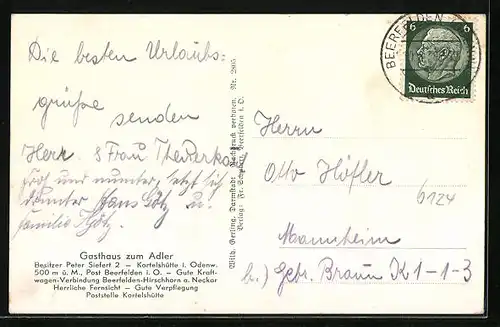 Die besten Urlaubs-
grüsse
senden
Herr. & Frau
froh und munter, setzt sich
darunter Hans Götz u.
Familie Götz
Gasthaus zum Adler
Besitzer Peter Siefert 2 — Kortelshütte i. Odenw.
500 m ü. M., Post Beerfelden i. O. — Gute Kraft-
wagen-Verbindung Beerfelden-Hirschhorn a. Neckar
Herrliche Fernsicht — Gute Verpflegung
Poststelle Kortelshütte
Wilh. Gerling, Darmstadt Nachdruck verboten. Nr. 2805
Verlag: Fr. Beerfelden i. O.
BEERFELDEN
6 6
Deutsches Reich
Herrn
Otto Höfler
6124
Mannheim
b.) Gebr. Braun K 1-1-3